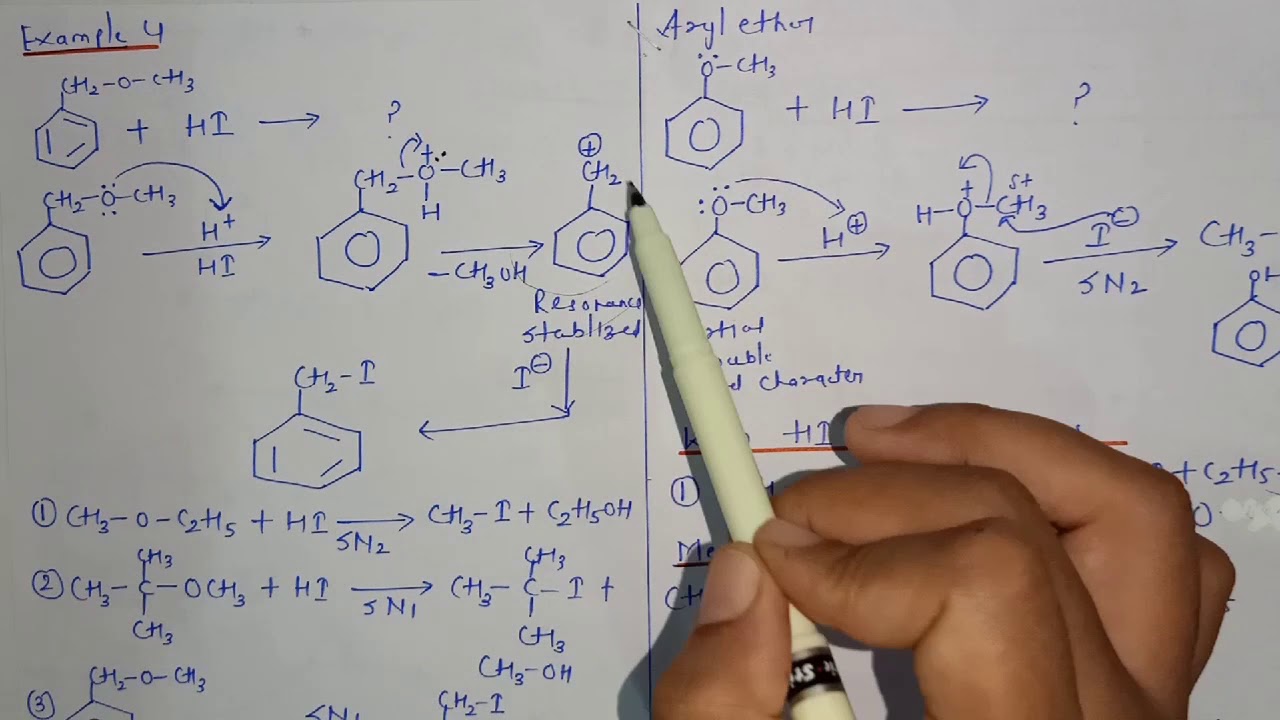 Example 4
CH2-O-CH3
+ HI → ?
CH2-O-CH3
H+
HI
CH2-O-CH3
+
H
-CH3OH
⊕
CH2
Resonance
stablized
I⊖
CH2-I
① CH3-O-C2H5 + HI → CH3-I + C2H5OH
SN2
CH3
CH3
② CH3-C-OCH3 + HI → CH3-C-I +
SN1
CH3
CH3
CH3-OH
③
CH2-O-CH3
SN1
CH2-I
Aryl ether
O-CH3
+ HI → ?
:O-CH3
H⊕
+ δ+
H-O-CH3
I⊖
SN2
CH3-
OH
character
HI
①
+ C2H5-